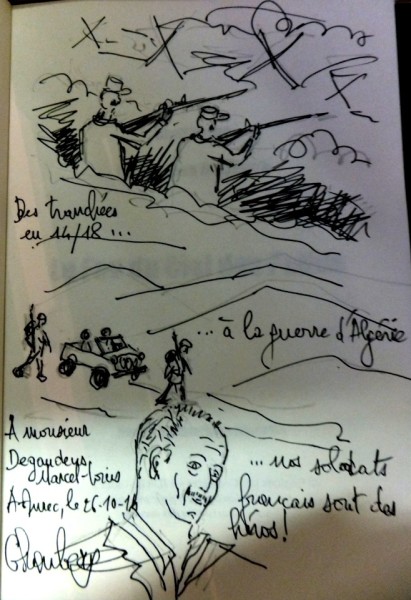 Des tranchées
en 14/18 ...
... à la guerre d'Algérie
A monsieur
Degandeys
Marcel-
A le 26-10-18
... nos soldats
français sont des
héros!